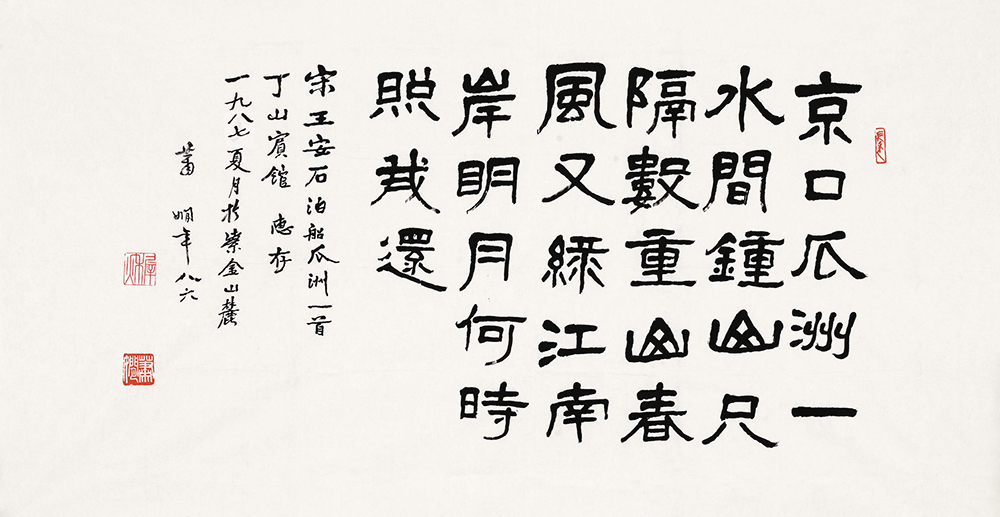 京口瓜洲一
水間鍾山只
隔數重山春
風又綠江南
岸明月何時
照我還
宋王安石泊船瓜洲一首
丁山賓館 惠存
一九八七夏月於紫金山麓
蕭嫻年八六
蕭嫻